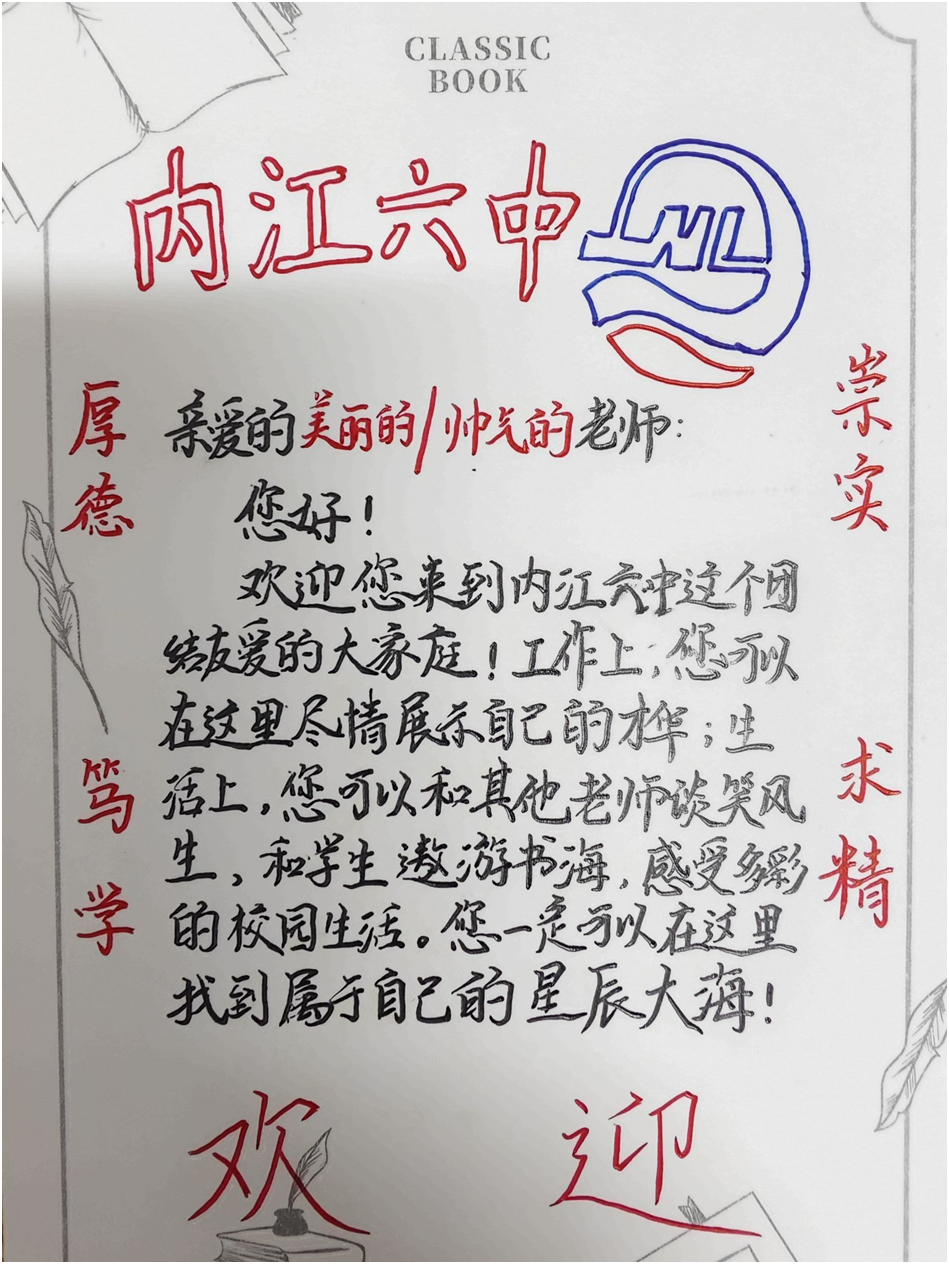 CLASSIC
BOOK
内江六中
厚德
崇实
亲爱的美丽的/帅气的老师:
您好!
欢迎您来到内江六中这个团
结友爱的大家庭!工作上,您可以
在这里尽情展示自己的才华;生
活上,您可以和其他老师谈笑风
生,和学生遨游书海,感受多彩
的校园生活。您一定可以在这里
找到属于自己的星辰大海!
笃学
求精
欢迎